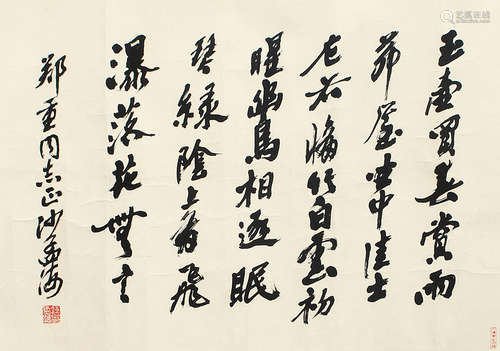 玉壺買春賞雨
茅屋坐中佳士
左右脩竹白雲初
晴幽鳥相逐眠
琴綠陰上有飛
瀑落花無言
鄭重同志正沙孟海